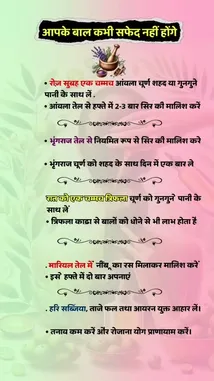 आपके बाल कभी सफेद नहीं होंगे
• रोज़ सुबह एक चम्मच आंवला चूर्ण शहद या गुनगुने
पानी के साथ लें .
• आंवला तेल से हफ्ते में 2-3 बार सिर की मालिश करें
• भृंगराज तेल से नियमित रूप से सिर की मालिश करे
• भृंगराज चूर्ण को शहद के साथ दिन में एक बार ले
रात को एक चम्मच त्रिफला चूर्ण को गुनगुने पानी के
साथ लें
• त्रिफला काढ़ा से बालों को धोने से भी लाभ होता है
. नारियल तेल में नींबू का रस मिलाकर मालिश करें
• इसे हफ्ते में दो बार अपनाएं
. हरि सब्जिया, ताजे फल तथा आयरन युक्त आहार लें।
• तनाव कम करें और रोजाना योग प्राणायाम करें।